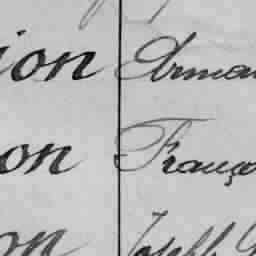 ion Arman
on Franço
on Joseph